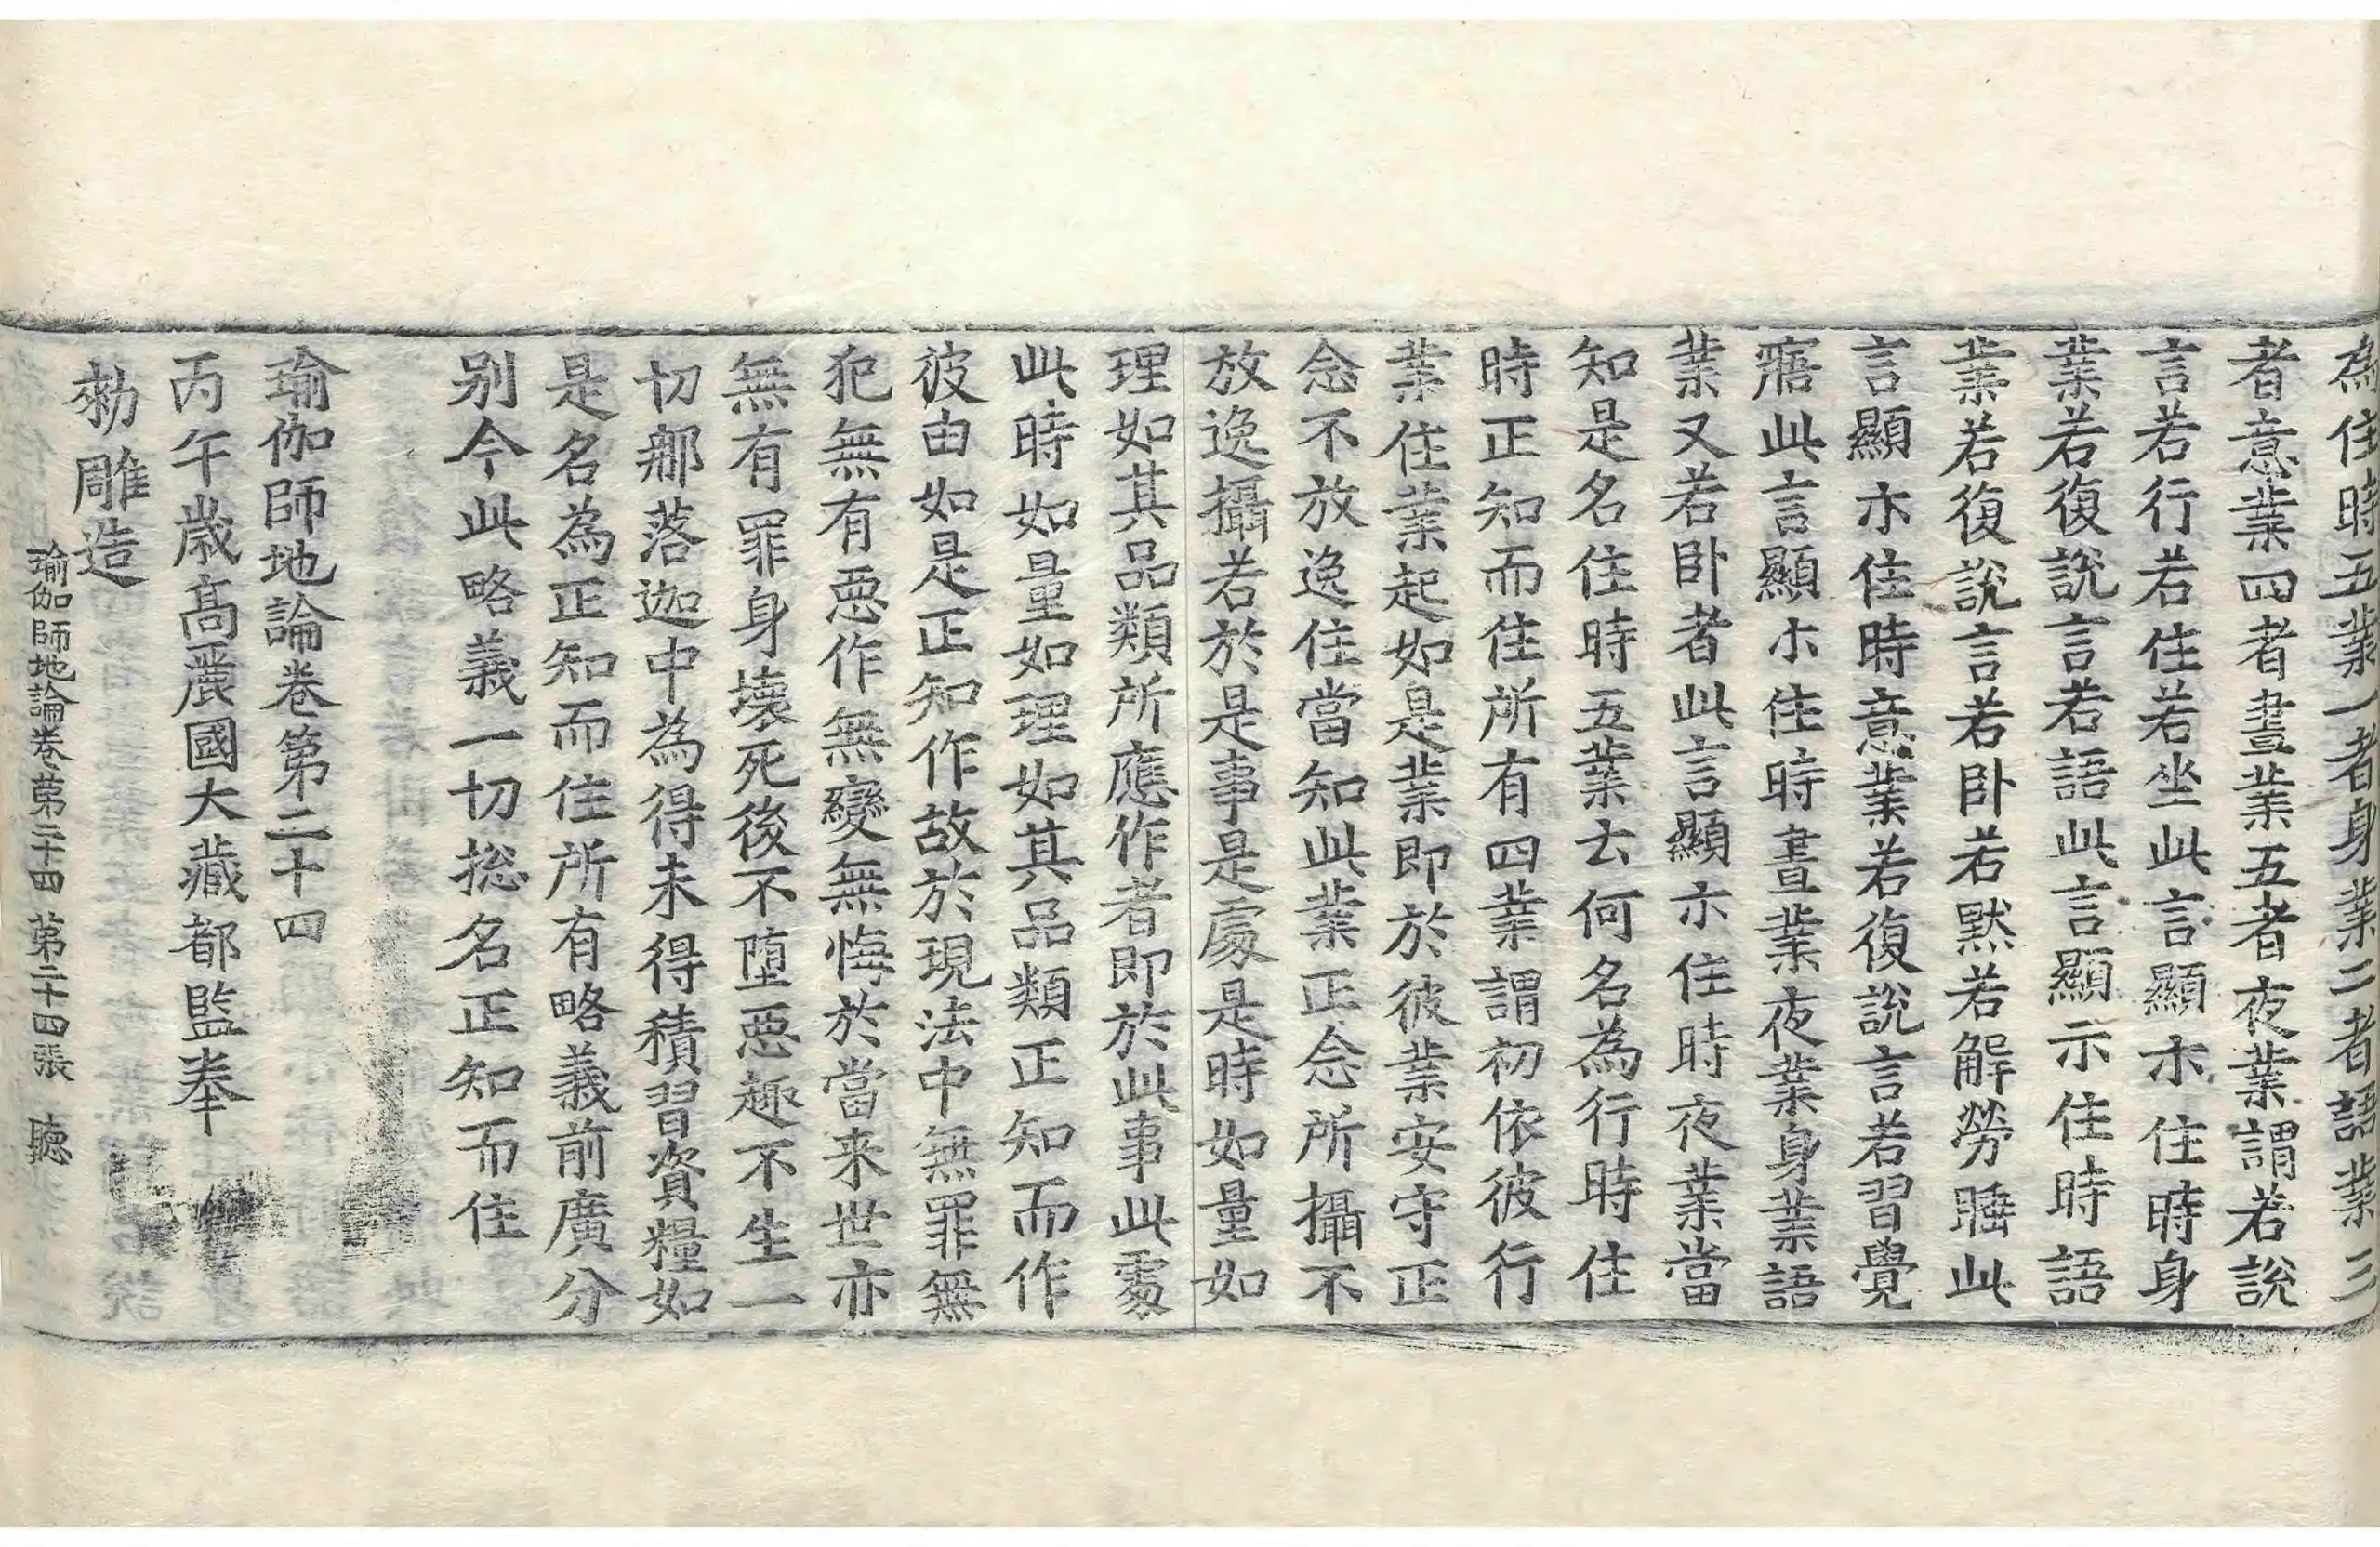 為住時五業一者身業二者語業三
者意業四者晝業五者夜業謂若說
言若行若住若坐此言顯示住時身
業若復說言若語此言顯示住時語
業若復說言若卧若默若解勞睡此
言顯示住時意業若復說言若習覺
寤此言顯示住時晝業夜業身業語
業又若卧者此言顯示住時夜業當
知是名住時五業云何名為行時住
時正知而住所有四業謂初依彼行
業住業起如是業即於彼業安守正
念不放逸住當知此業正念所攝不
放逸攝若於是事是處是時如量如
理如其品類所應作者即於此事此處
此時如量如理如其品類正知而作
彼由如是正知作故於現法中無罪無
犯無有惡作無變無悔於當来世亦
無有罪身壞死後不墮惡趣不生一
切那落迦中為得未得積習資糧如
是名為正知而住所有略義前廣分
别今此略義一切捴名正知而住
瑜伽師地論卷第二十四
丙午歲高麗國大藏都監奉
勑雕造
瑜伽師地論卷第二十四 第二十四張 聰